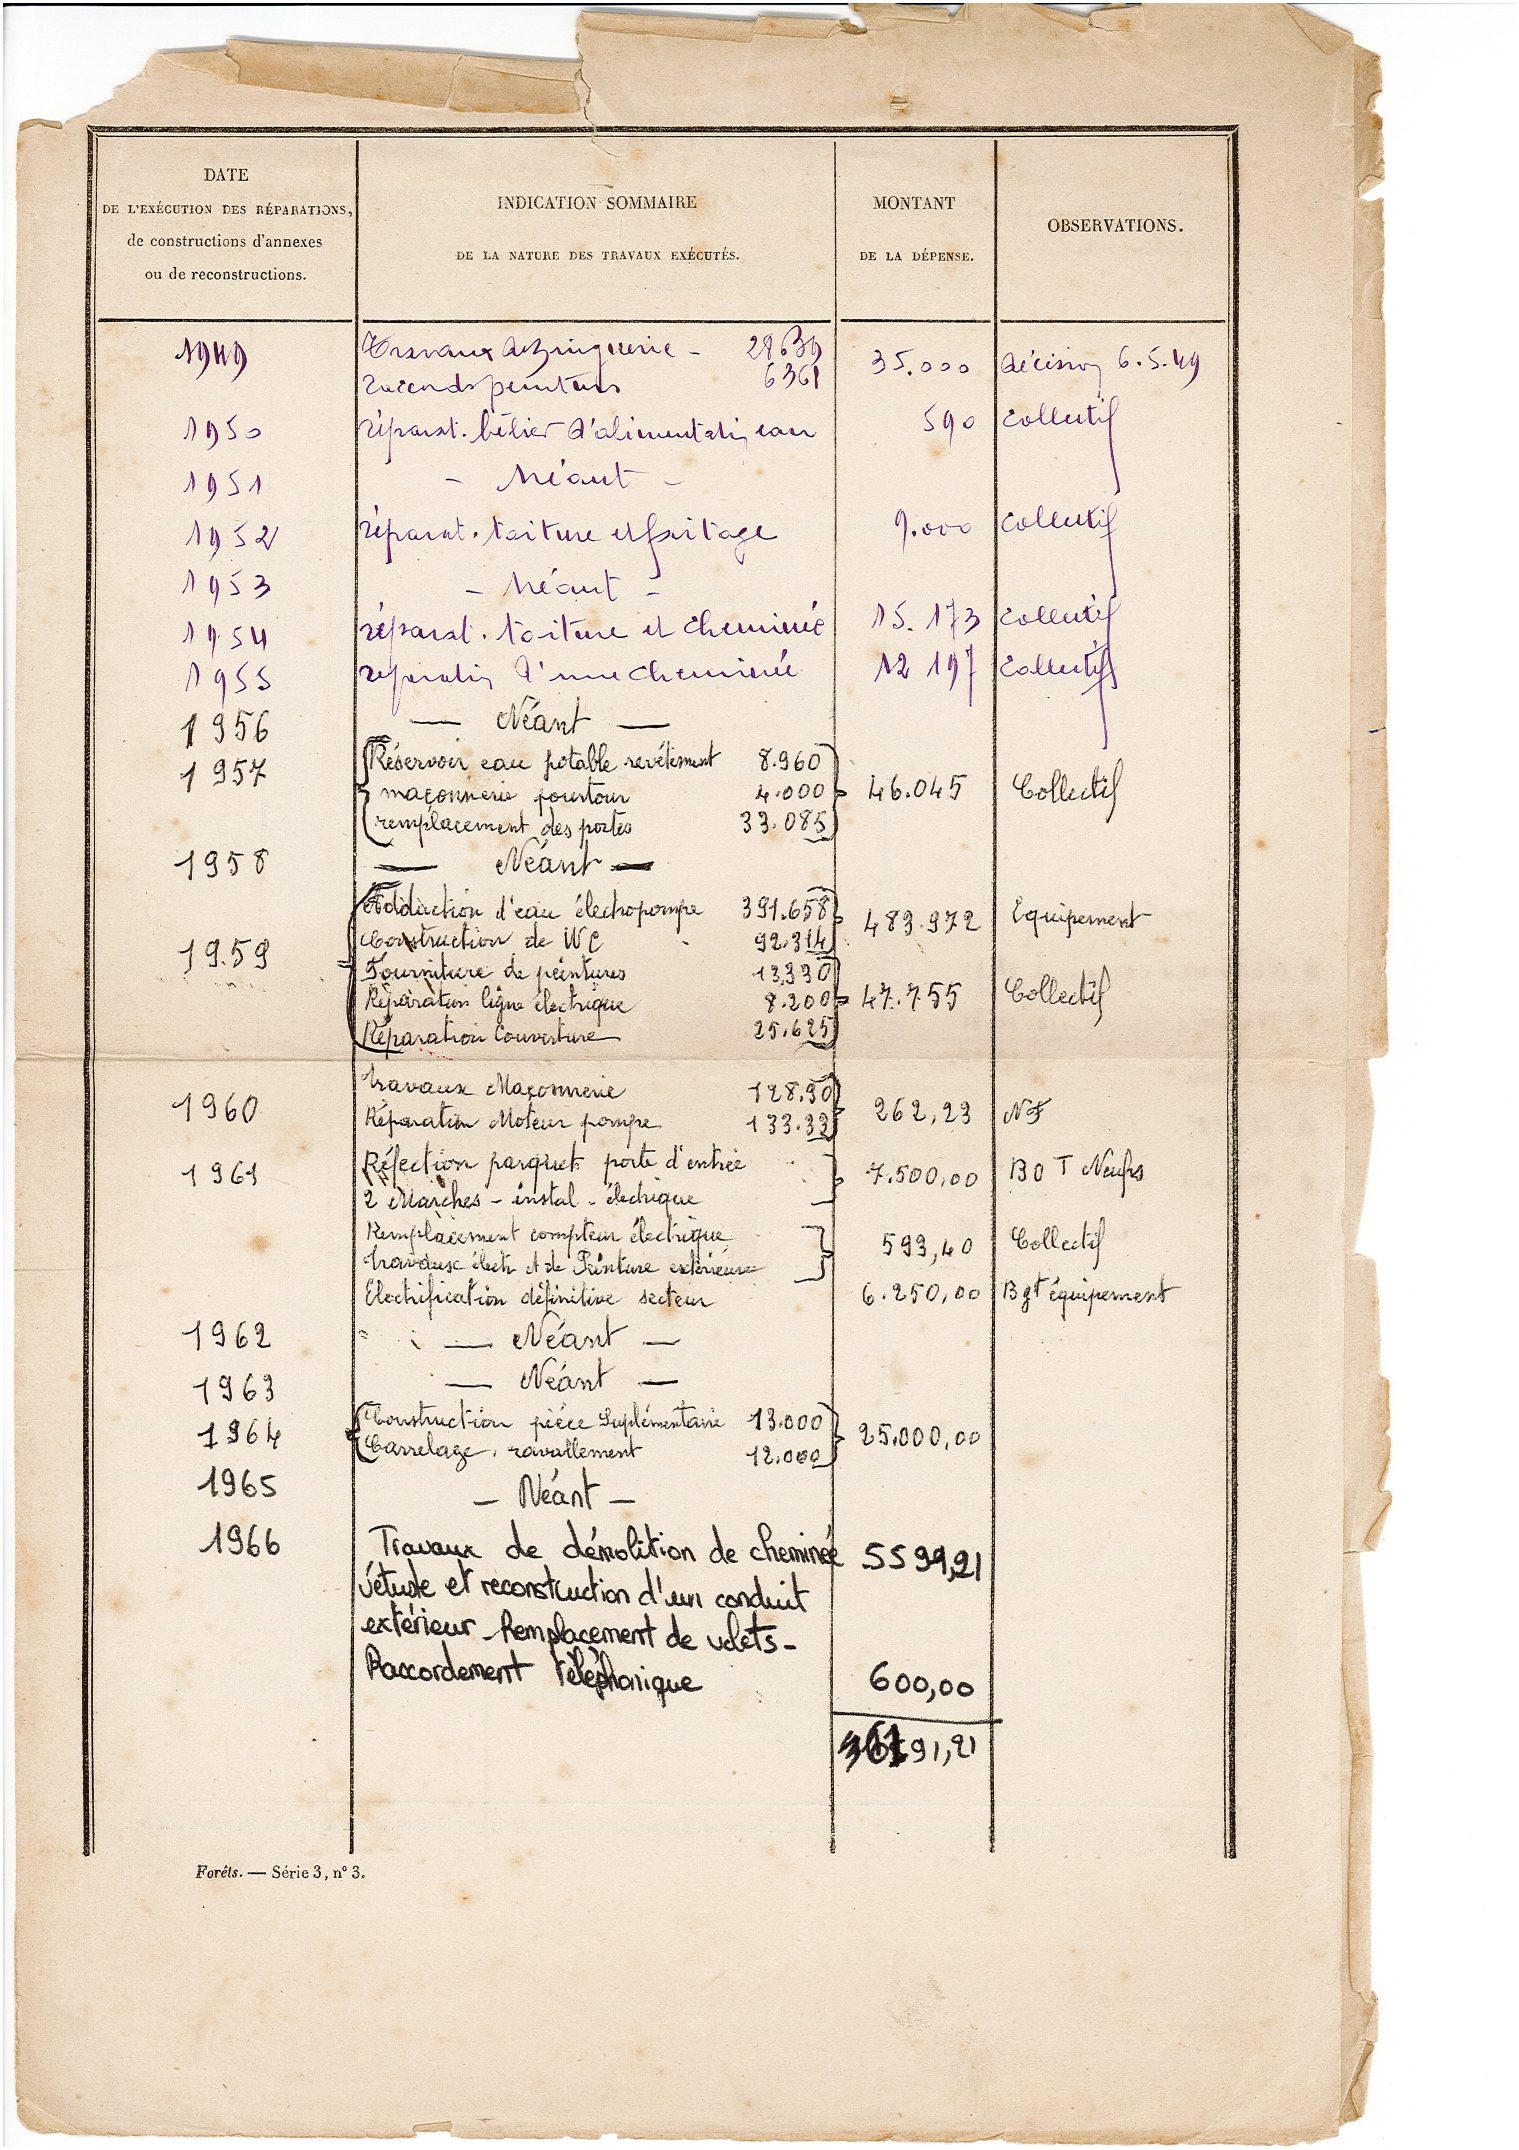 DATE
DE L'EXÉCUTION DES RÉPARATIONS,
de constructions d'annexes
ou de reconstructions.
INDICATION SOMMAIRE
DE LA NATURE DES TRAVAUX EXÉCUTÉS.
MONTANT
DE LA DÉPENSE.
OBSERVATIONS.
1949 Travaux de Zinguerie - 28639 35.000 décision 6.5.49
raccords peintures 6361
1950 réparat. bélier d'alimentation eau 590 Collectif
1951 - Néant -
1952 réparat. toiture et faitage 9.000 Collectif
1953 - Néant -
1954 réparat. toiture et cheminée 15.173 Collectif
1955 réparation d'une cheminée 12 197 Collectif
1956 — Néant —
1957 Réservoir eau potable revêtement 8.960
maçonnerie pourtour 4.000 46.045 Collectif
remplacement des portes 33.085
1958 — Néant —
Adduction d'eau électropompe 391.658 483.972 Equipement
Construction de WC 92.314
1959 Fourniture de peintures 13,930
Réparation ligne électrique 8.200 47.755 Collectif
Réparation Couverture 25.625
Travaux Maçonnerie 128.90
1960 Réparation Moteur pompe 133.33 262,23 NF
1961 Réfection parquet porte d'entrée 7.500,00 BoT Neufs
2 Marches - instal - électrique
Remplacement compteur électrique 593,40 Collectif
Travaux élect. et de Peinture extérieure
Electrification définitive secteur 6.250,00 Bgt équipement
1962 — Néant —
1963 — Néant —
1964 Construction pièce Suplémentaire 13.000 25.000,00
Carrelage, ravallement 12.000
1965 - Néant -
1966 Travaux de démolition de cheminée 5591,21
vétuste et reconstruction d'un conduit
extérieur - Remplacement de volets -
Raccordement téléphonique 600,00
91,21
Forêts. — Série 3, n° 3.